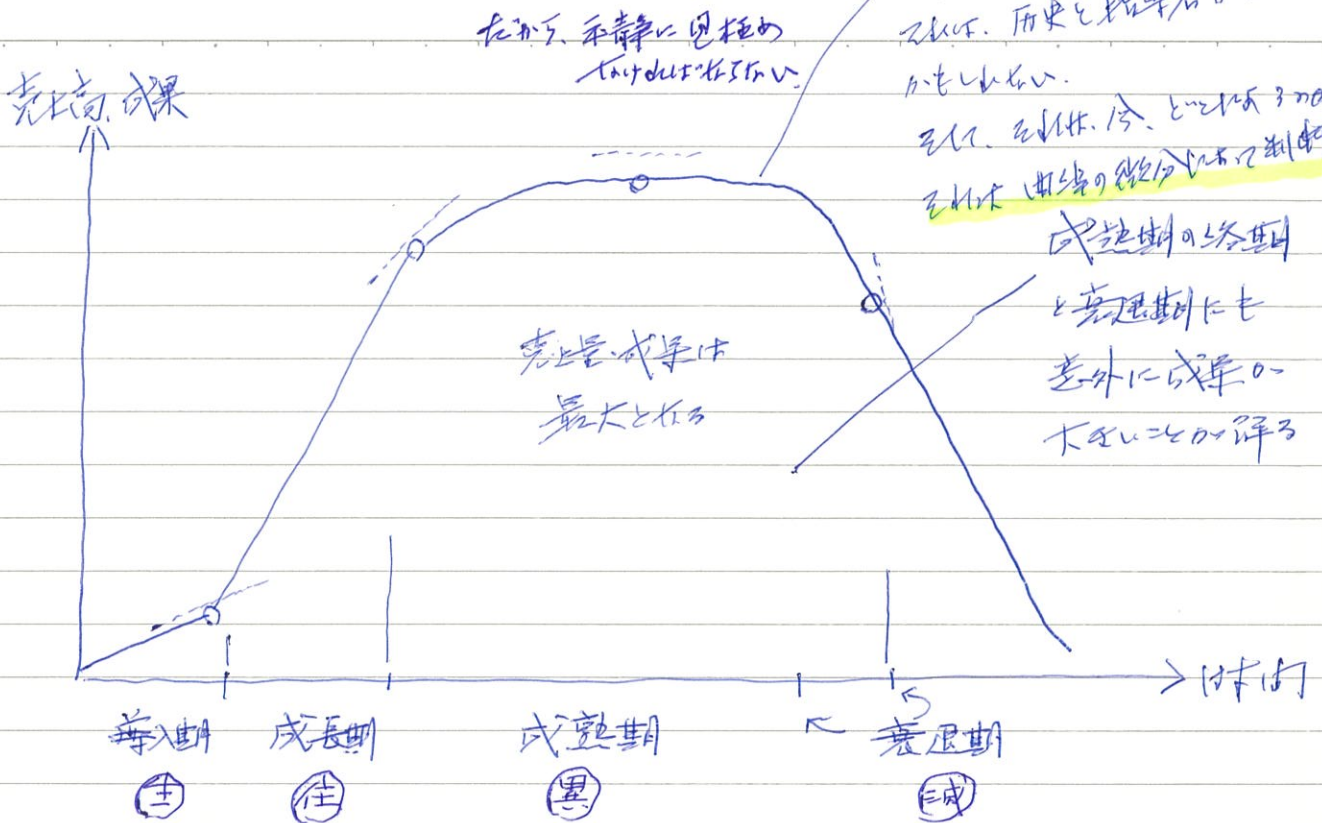 だから、冷静に見極め
なければならない
それは、歴史と指導者
かもしれない。
そして、それは、今、どこにあるのか
それは曲線の微分によって判断
売上高、成果
成熟期の終期
と衰退期にも
意外に成果が
大きいことが解る
売上量・成果は
最大となる
時間
導入期 成長期 成熟期 衰退期
生 住 異 滅